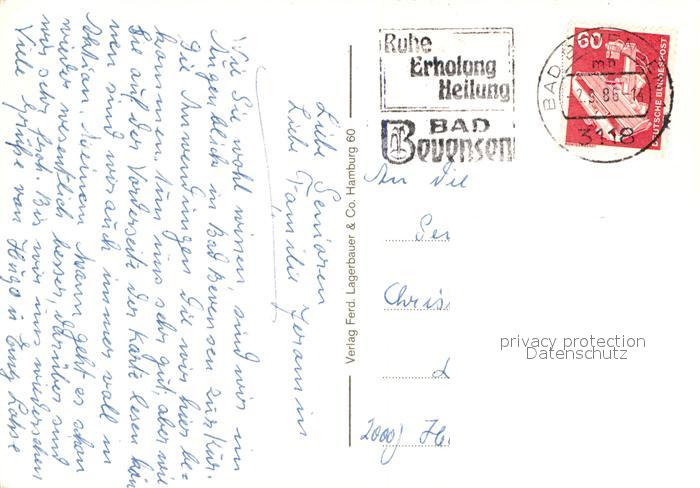 Liebe Senioren
Liebe Familie
Wie Sie wohl wissen, sind wir im
Augenblick in Bad Bevensen zur Kur.
Die Anwendungen die wir hier be-
kommen, tun uns sehr gut, aber wie
Sie auf der Vorderseite der Karte lesen kön
nen sind wir auch immer voll in
Aktion. Meinem Mann geht es schon
wieder wesentlich besser, darüber sind
wir sehr froh. Bis wir uns wiedersehen
Viele Grüße von Hugo u
Verlag Ferd. Lagerbauer & Co. Hamburg 60
Ruhe
Erholung
Heilung
BAD
Bevensen
BAD BEVENSEN
mb
86-14
3118
60
DEUTSCHE BUNDESPOST
An die
Se
Chris
2000
privacy protection
Datenschutz